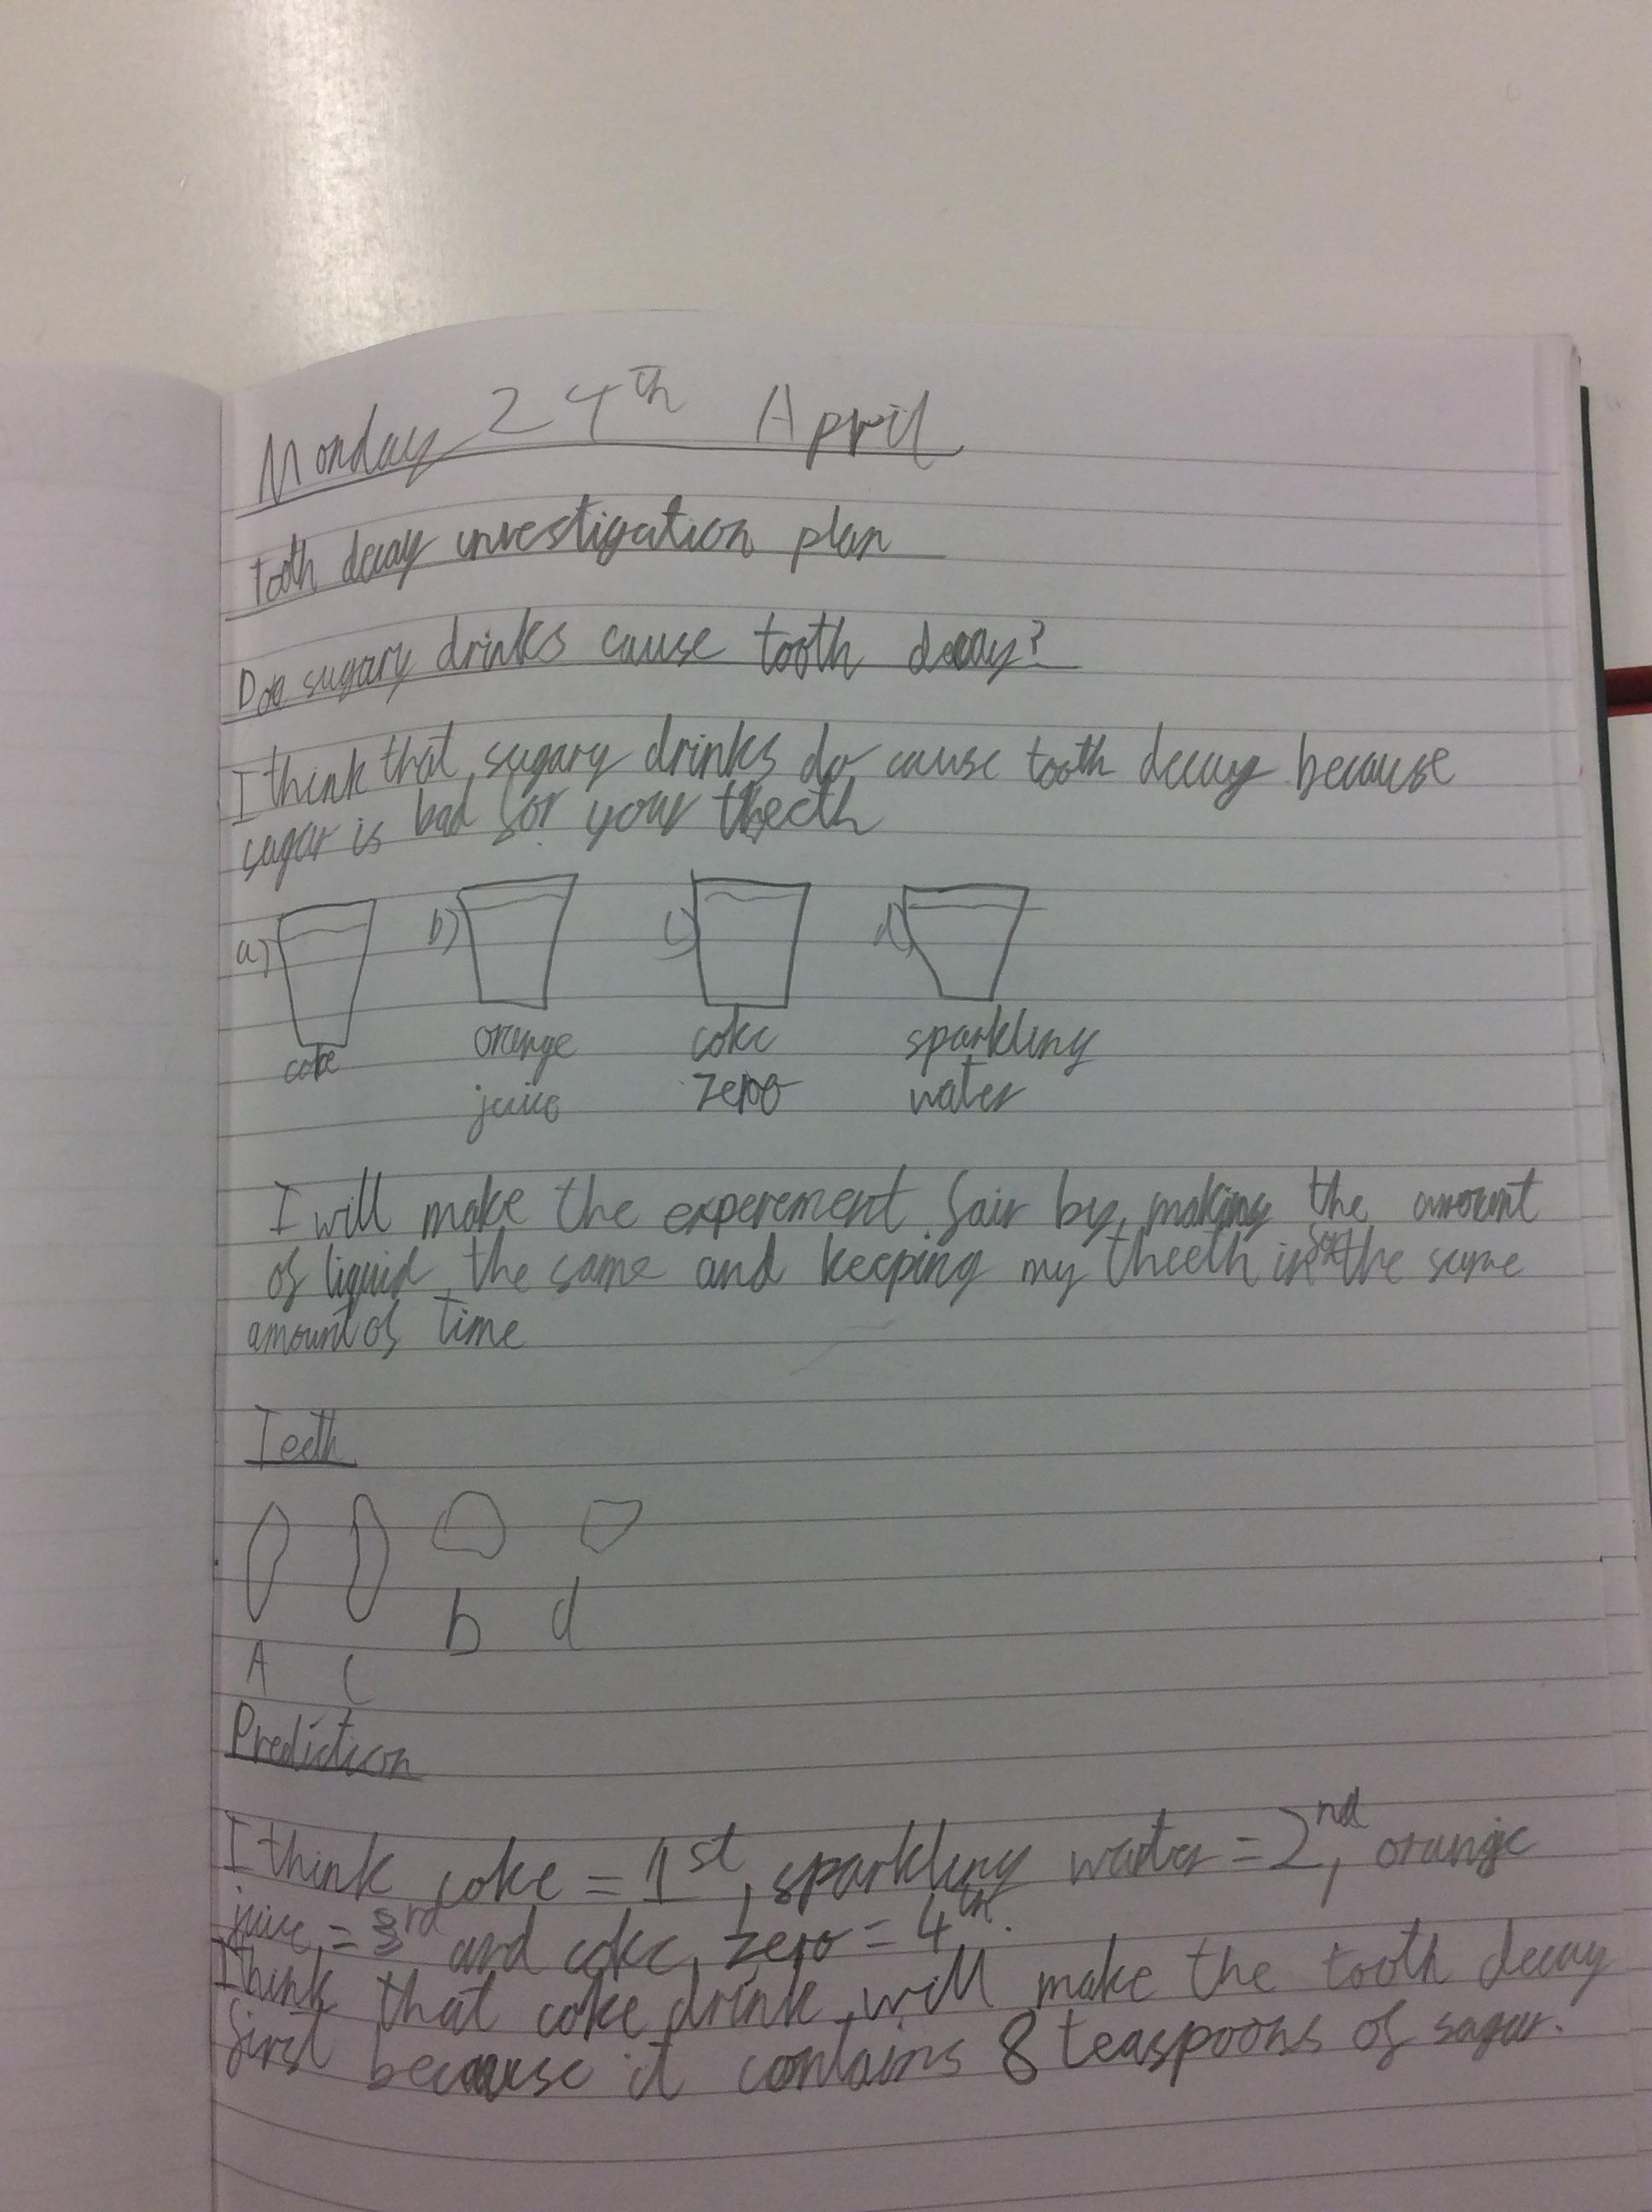 Monday 24th April
Tooth decay investigation plan
Do sugary drinks cause tooth decay?
I think that sugary drinks do cause tooth decay because
sugar is bad for your theeth
a) b) c) d)
coke orange coke sparkling
juice zero water
I will make the experement fair by making the amount
of liquid the same and keeping my theeth in for the same
amount of time
Teeth
b d
A C
Prediction
I think coke = 1st, sparkling water = 2nd, orange
juice = 3rd and coke zero = 4th.
I think that coke drink will make the tooth decay
first because it contains 8 teaspoons of sugar.